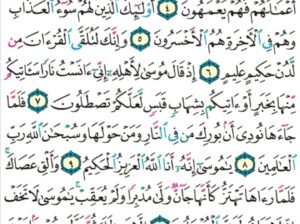 أَعْمَٰلَهُمْ فَهُمْ يَعْمَهُونَ ٤ أُو۟لَٰٓئِكَ ٱلَّذِينَ لَهُمْ سُوٓءُ ٱلْعَذَابِ
وَهُمْ فِى ٱلْءَاخِرَةِ هُمُ ٱلْأَخْسَرُونَ ٥ وَإِنَّكَ لَتُلَقَّى ٱلْقُرْءَانَ مِن
لَّدُنْ حَكِيمٍ عَلِيمٍ ٦ إِذْ قَالَ مُوسَىٰ لِأَهْلِهِۦٓ إِنِّىٓ ءَانَسْتُ نَارًا سَـَٔاتِيكُم
مِّنْهَا بِخَبَرٍ أَوْ ءَاتِيكُم بِشِهَابٍ قَبَسٍ لَّعَلَّكُمْ تَصْطَلُونَ ٧ فَلَمَّا
جَآءَهَا نُودِىَ أَنۢ بُورِكَ مَن فِى ٱلنَّارِ وَمَنْ حَوْلَهَا وَسُبْحَٰنَ ٱللَّهِ رَبِّ
ٱلْعَٰلَمِينَ ٨ يَٰمُوسَىٰٓ إِنَّهُۥٓ أَنَا ٱللَّهُ ٱلْعَزِيزُ ٱلْحَكِيمُ ٩ وَأَلْقِ عَصَاكَ ۚ
فَلَمَّا رَءَاهَا تَهْتَزُّ كَأَنَّهَا جَآنٌّ وَلَّىٰ مُدْبِرًا وَلَمْ يُعَقِّبْ ۚ يَٰمُوسَىٰ لَا تَخَفْ